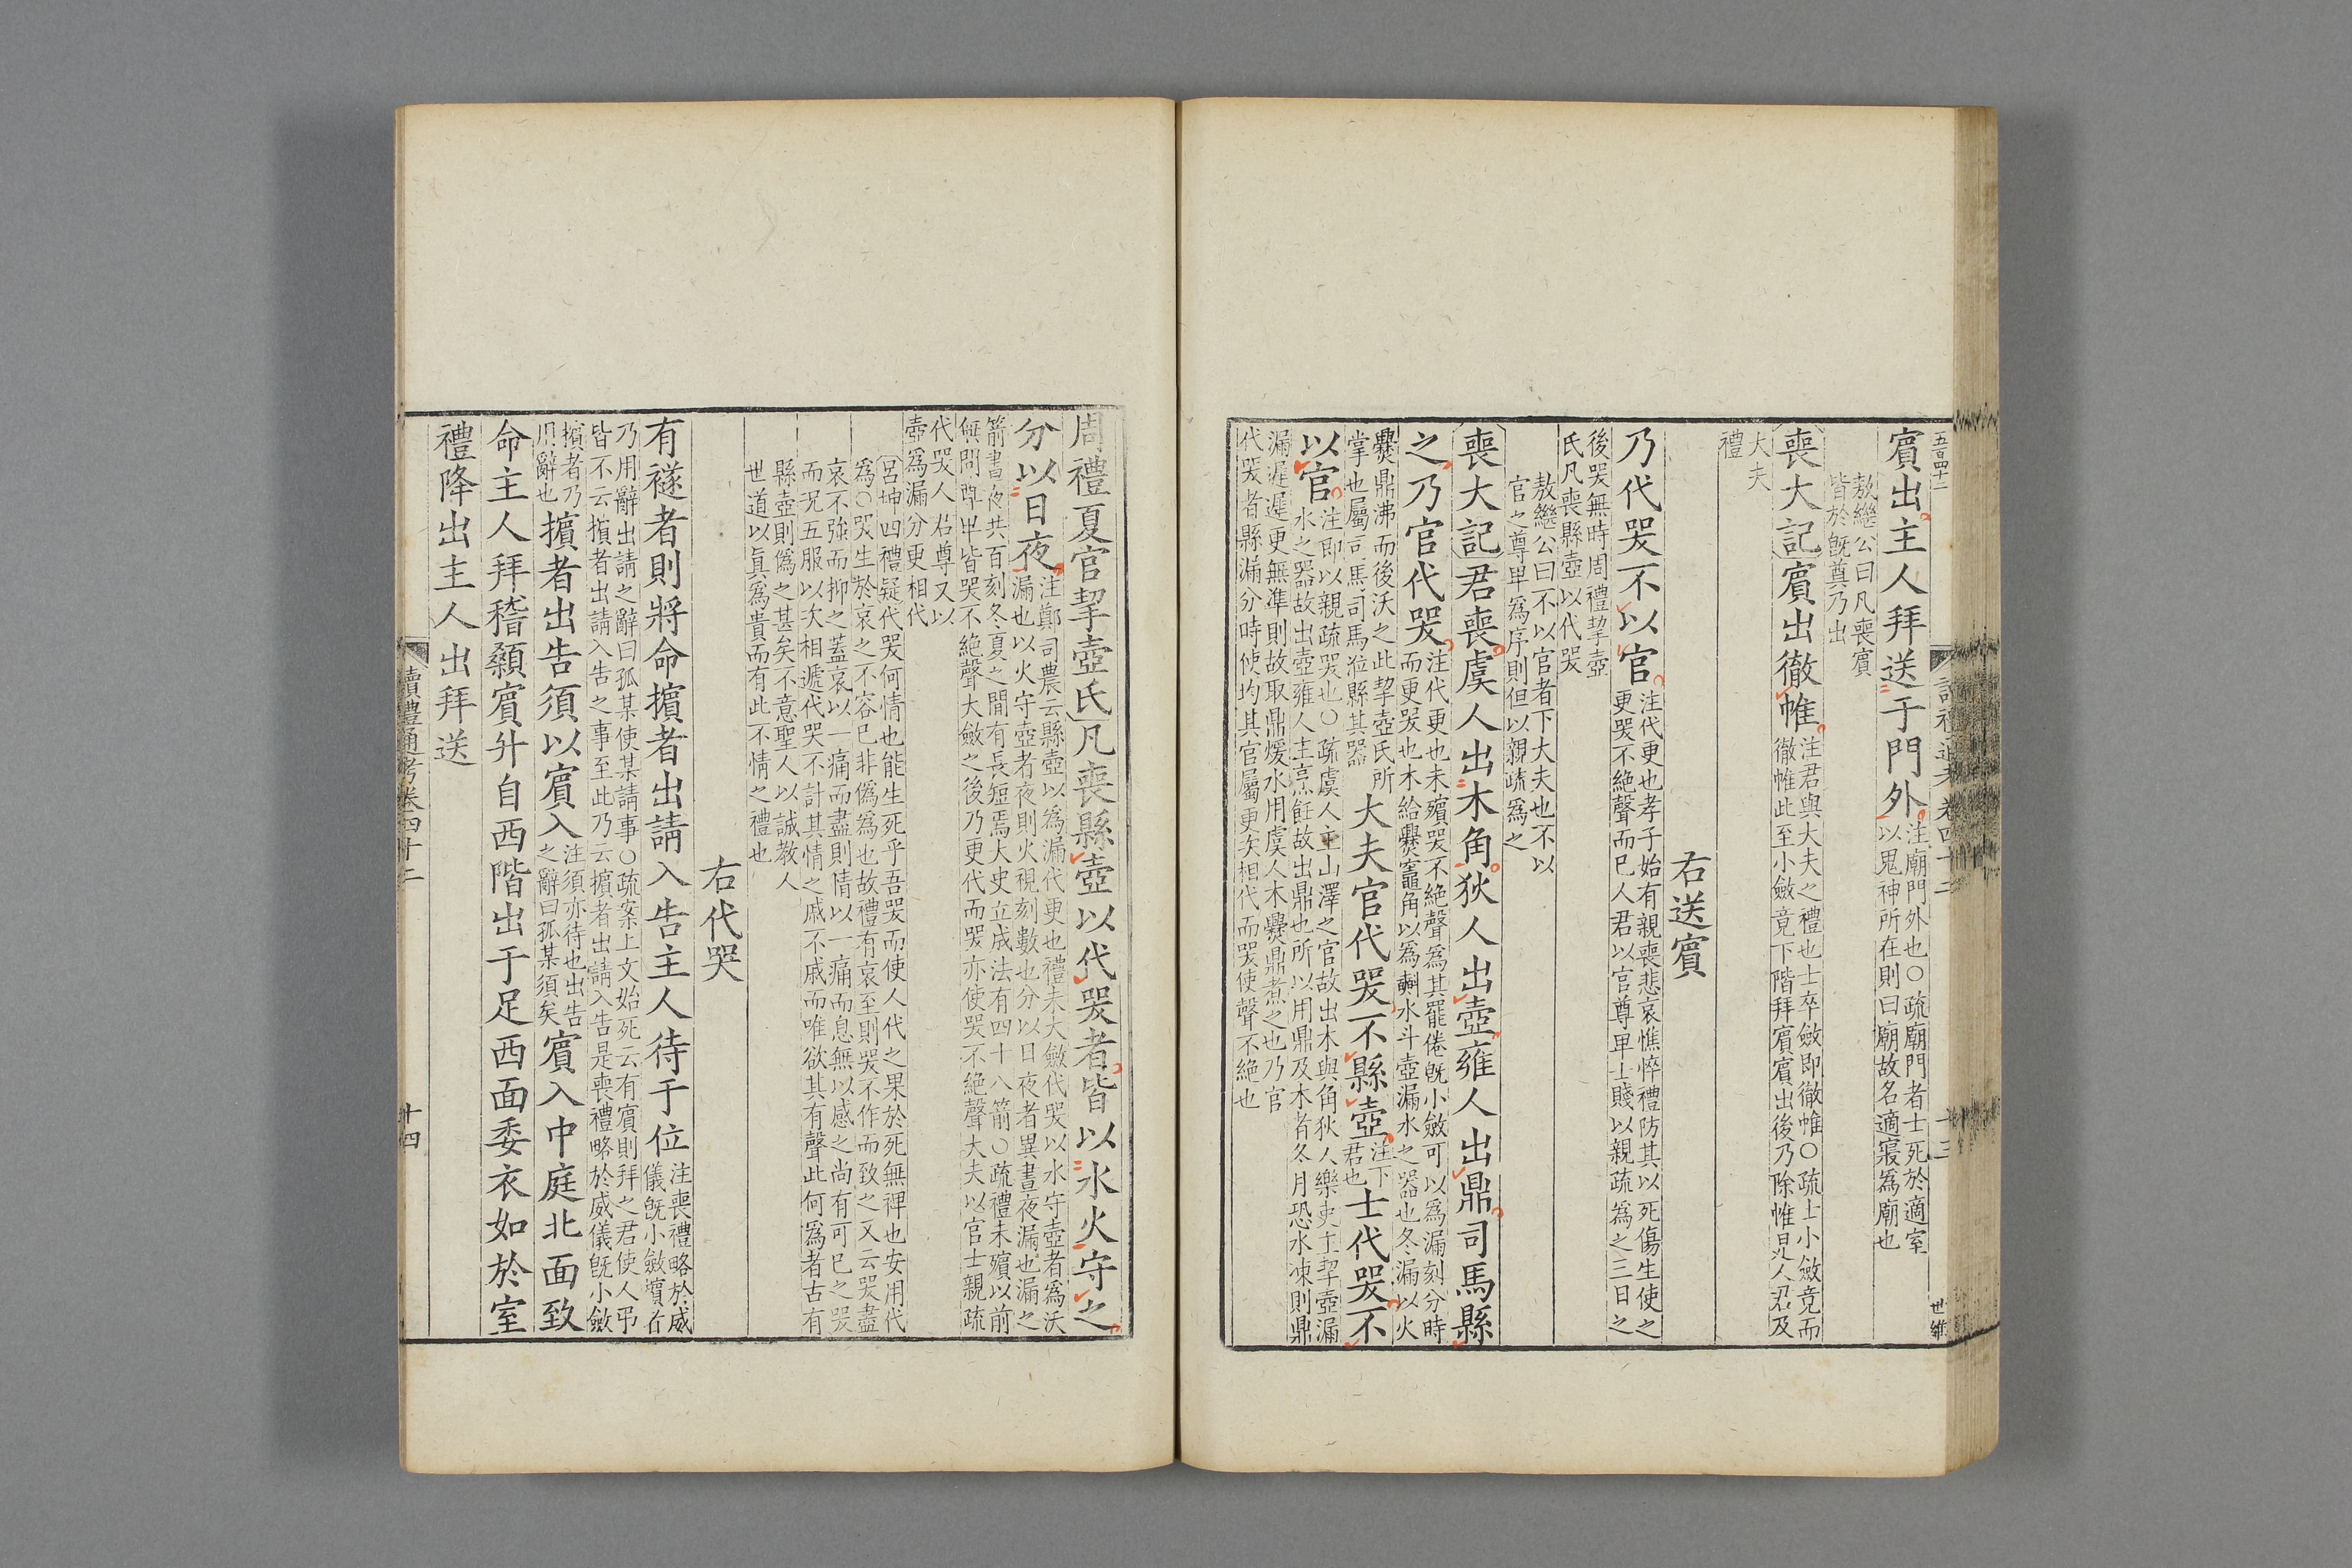 五百四十二
讀禮通考卷四十二
十三
世維
賓出主人拜送于門外注廟門外也○疏廟門者士死於適室
以鬼神所在則曰廟故名適寢為廟也
敖繼公曰凡喪賓
皆於既奠乃出
喪大記賓出徹帷注君與大夫之禮也士卒斂即徹帷○疏士小斂竟而
徹帷此至小斂竟下階拜賓賓出後乃除帷是人君及
大夫
禮
右送賓
乃代哭不以官注代更也孝子始有親喪悲哀憔悴禮防其以死傷生使之
更哭不絕聲而已人君以官尊卑士賤以親疏為之三日之
後哭無時周禮挈壺
氏凡喪縣壺以代哭
敖繼公曰不以官者下大夫也不以
官之尊卑為序則但以親疏為之
喪大記君喪虞人出木角狄人出壺雍人出鼎司馬縣
之乃官代哭注代更也未殯哭不絕聲為其罷倦既小斂可以為漏刻分時
而更哭也木給爨竈角以為㪺水斗壺漏水之器也冬漏以火
爨鼎沸而後沃之此挈壺氏所
掌也屬司馬司馬涖縣其器大夫官代哭不縣壺注下
君也士代哭不
以官注即以親疏哭也○疏虞人主山澤之官故出木與角狄人樂吏主挈壺漏
水之器故出壺雍人主烹飪故出鼎也所以用鼎及木者冬月恐水凍則鼎
漏遲遲更無準則故取鼎煖水用虞人木爨鼎煮之也乃官
代哭者縣漏分時使均其官屬更次相代而哭使聲不絕也
周禮夏官挈壺氏凡喪縣壺以代哭者皆以水火守之
分以日夜注鄭司農云縣壺以為漏代更也禮未大斂代哭以水守壺者為沃
漏也以火守壺者夜則火視刻數也分以日夜者異晝夜漏也漏之
箭晝夜共百刻冬夏之閒有長短焉大史立成法有四十八箭○疏禮未殯以前
無問尊卑皆哭不絕聲大斂之後乃更代而哭亦使哭不絕聲大夫以官士親疏
代哭人君尊又以
壺為漏分更相代
呂坤四禮疑代哭何情也能生死乎吾哭而使人代之果於死無裨也安用代
為○哭生於哀之不容已非偽為也故禮有哀至則哭不作而致之又云哭盡
哀不強而抑之蓋哀以一痛而盡則情以一痛而息無以感之尚有可已之哭
而況五服以次相遞代哭不計其情之戚不戚而唯欲其有聲此何為者古有
縣壺則偽之甚矣不意聖人以誠教人
世道以眞為貴而有此不情之禮也
右代哭
有襚者則將命擯者出請入告主人待于位注喪禮略於威
儀既小斂擯者
乃用辭出請之辭曰孤某使某請事○疏案上文始死云有賓則拜之君使人弔
皆不云擯者出請入告之事至此乃云擯者出請入告是喪禮略於威儀既小斂
擯者乃
用辭也擯者出告須以賓入注須亦待也出告
之辭曰孤某須矣賓入中庭北面致
命主人拜稽顙賓升自西階出于足西面委衣如於室
禮降出主人出拜送
讀禮通考卷四十二
十四